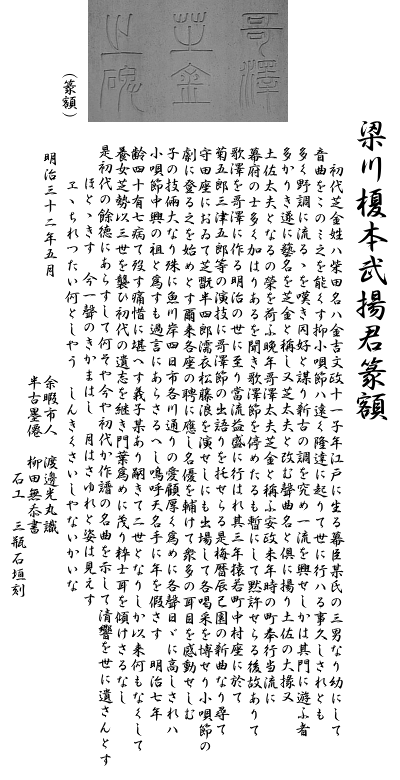 哥澤
芝金
之碑
(篆額)
梁川榎本武揚君篆額
初代芝金姓ハ柴田名ハ金吉文政十一子年江戸に生る幕臣某氏の三男なり幼にして
音曲をこのミ之を能くす抑小唄節ハ遠く隆達に起りて世に行ハる事久しされとも
多く野調に流るゝを嘆き同好と謀り新古の調を究め一流を興せしか其門に遊ふ者
多かりき遂に藝名を芝金と稱し又芝太夫と改む聲曲名と倶に揚り土佐の大掾又
土佐太夫となるの榮を荷ふ晩年哥澤太夫芝金と稱ふ安政末年時の町奉行当流に
幕府の士多く加はりあるを聞き歌澤節を停めたるも暫にして黙許せらる後故ありて
歌澤を哥澤に作る明治の世に至り當流益盛に行はれ其三年猿若町中村座に於て
菊五郎三津五郎等の演技に哥澤節の出語りを托せらる是梅暦辰巳園の新曲なり尋て
守田座におゐて芝翫半四郎濡衣松藤浪を演せしにも出場して各喝采を博せり小唄節の
劇に登る之を始めとす爾来各座の聘に應し名優を輔けて衆多の耳目を感動せしむ
子の技倆大なり殊に魚川岸四日市各川通りの愛顧厚く為めに各聲日ゞに高しされハ
小唄節中興の祖と為すも過言にあらさるへし嗚呼天名手に年を假さす　明治七年
齢四十有七病て歿す痛惜に堪へす義子某あり嗣きて二世となりしか以来何もなくして
養女芝勢以三世を襲ひ初代の遺志を継き門葉為めに茂り粋士耳を傾けさるなし
是初代の餘徳にあらすして何そや今や初代か作譜の名曲を示して清響を世に遺さんとす
ほとゝきす　今一聲のきかまほし　月はさゆれと姿は見えす
エゝちれつたい何としやう　しんきくさいしやないかいな
明治三十二年五月
余暇市人　渡邊光丸識
半古墨僊　柳田無忝書
石工　三瓶石垣刻